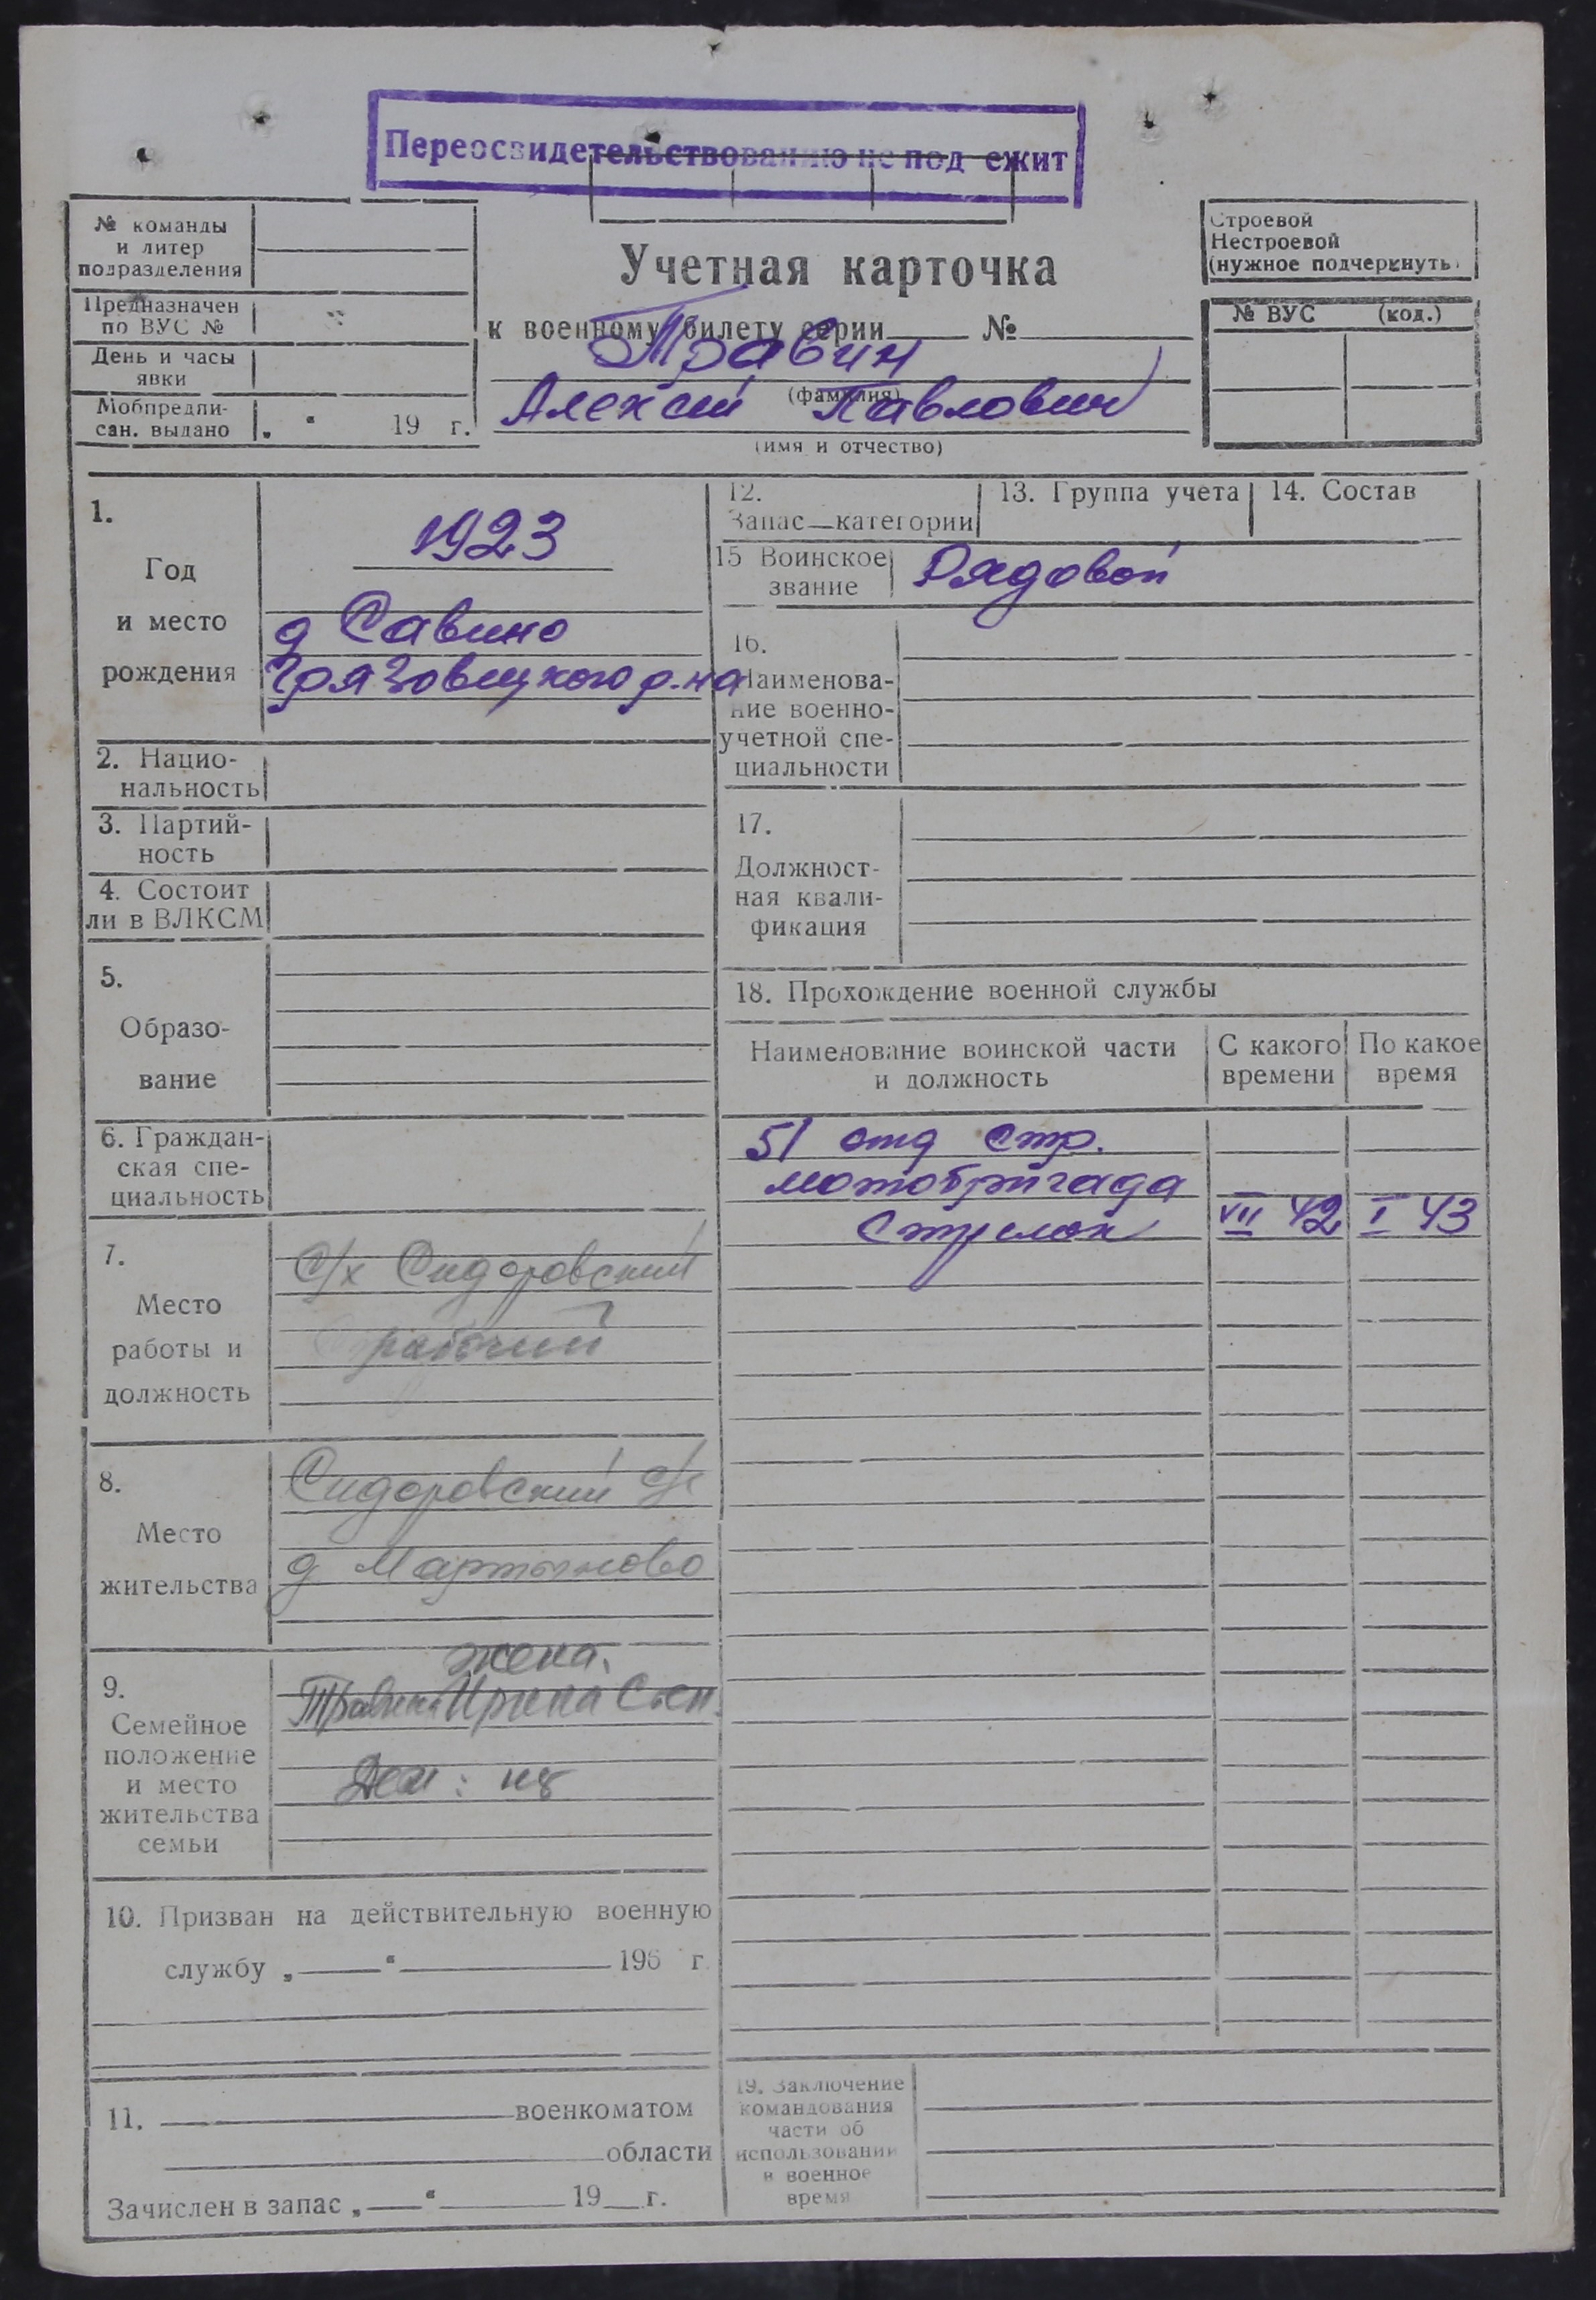 Переосвидетельствованию не под ежит
№ команды
и литер
подразделения
Предназначен
по ВУС №
День и часы
явки
Мобпредпи-
сан. выдано „ “ 19 г.
Учетная карточка
к военному билету серии №
Травин
(фамилия)
Алексей Павлович
(имя и отчество)
Строевой
Нестроевой
(нужное подчеркнуть)
№ ВУС (код.)
1.
Год
и место
рождения
1923
д Савино
Грязовецкого р-на
2. Нацио-
нальность
3. Партий-
ность
4. Состоит
ли в ВЛКСМ
5.
Образо-
вание
6. Граждан-
ская спе-
циальность
7.
Место
работы и
должность
с/х Сидоровский
рабочий
8.
Место
жительства
Сидоровский с/с
д Мартыново
9.
Семейное
положение
и место
жительства
семьи
жена.
Травина Ирина Степ.
Дети:
10. Призван на действительную военную
службу „ “ 196 г.
11. военкоматом
области
Зачислен в запас „ “ 19 г.
12.
Запас—категории
13. Группа учета
14. Состав
15 Воинское
звание
Рядовой
16.
Наименова-
ние военно-
учетной спе-
циальности
17.
Должност-
ная квали-
фикация
18. Прохождение военной службы
Наименование воинской части
и должность
С какого
времени
По какое
время
51 отд стр.
мотобригада
Стрелок VII 42 I 43
19. Заключение
командования
части об
использовании
в военное
время